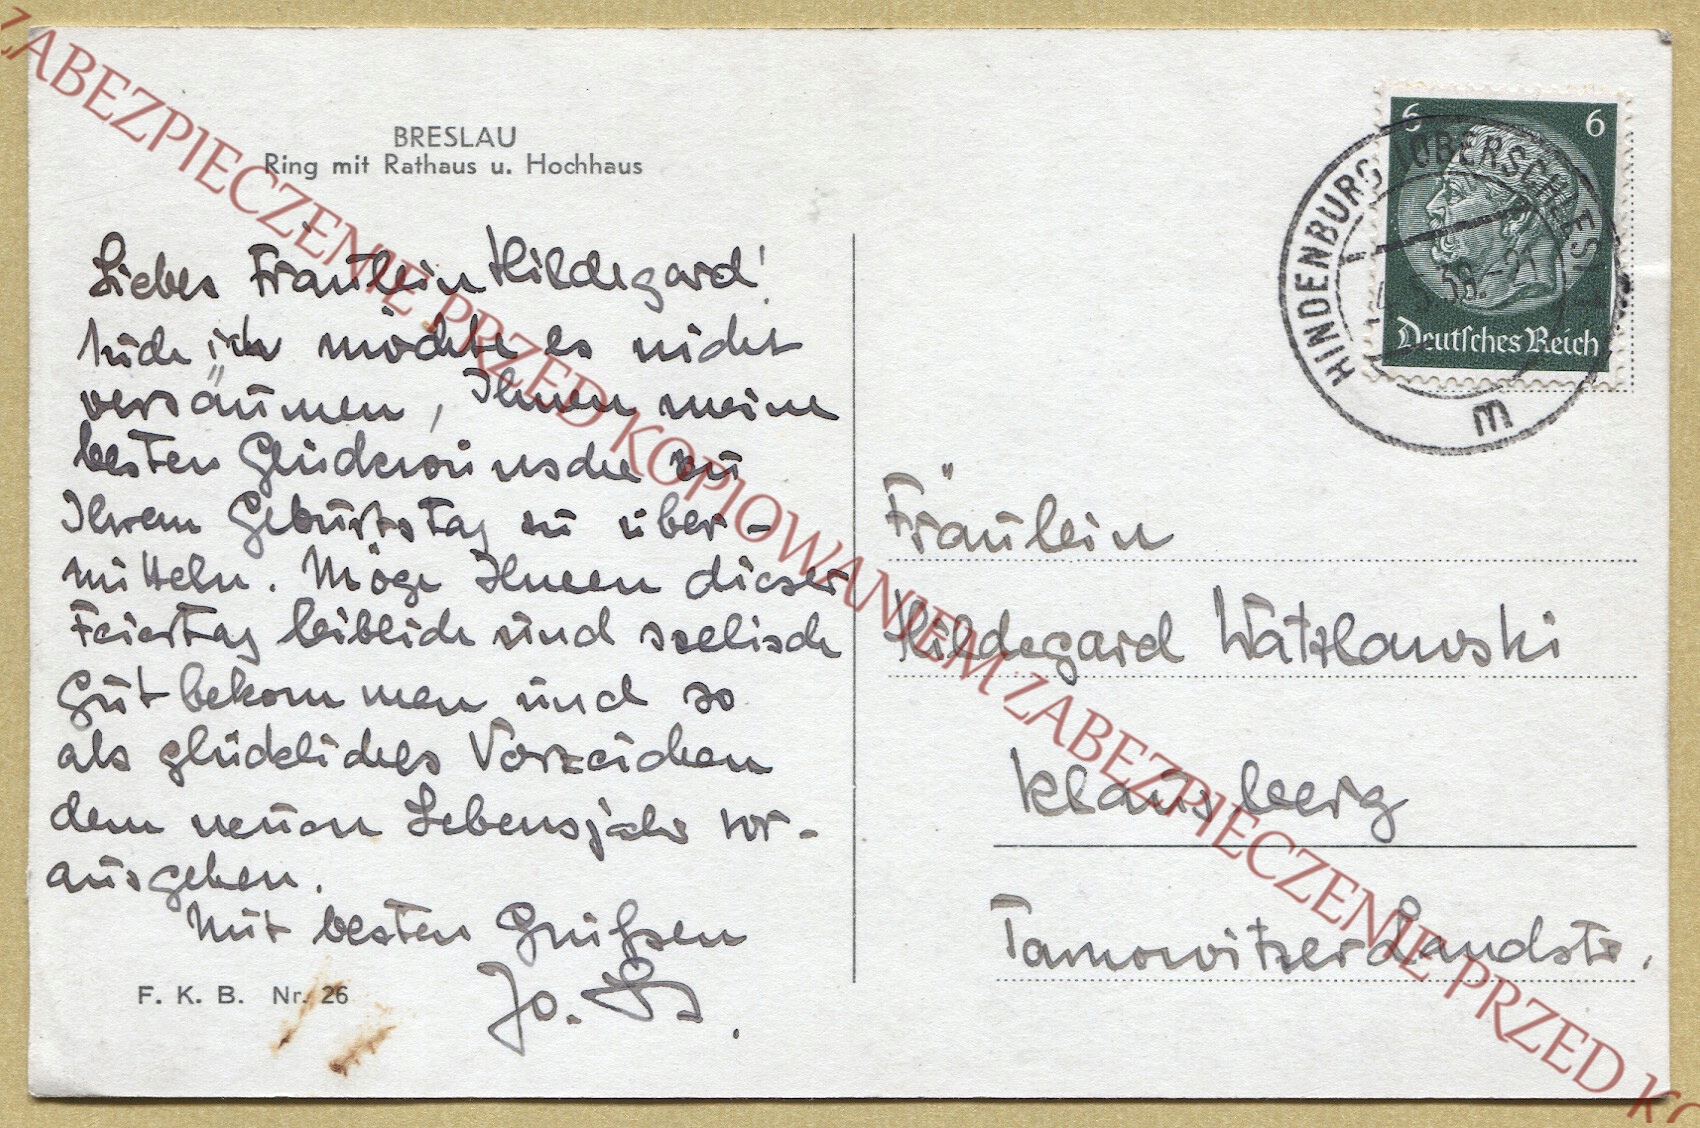 BRESLAU
Ring mit Rathaus u. Hochhaus
Liebes Fräulein Hildegard!
Auch ich möchte es nicht
versäumen, Ihnen meine
besten Glückwünsche zu
Ihrem Geburtstag zu über-
mitteln. Möge Ihnen dieser
Feiertag leiblich und seelisch
gut bekommen und so
als glückliches Vorzeichen
dem neuen Lebensjahr vor-
ausgehen.
Mit besten Grüßen
Jo.
F. K. B. Nr. 26
6 6
Deutsches Reich
HINDENBURG (OBERSCHLES
38.-21
m
Fräulein
Hildegard Watzlawski
Klausberg
Tarnowitzer Landstr.
ZABEZPIECZENIE PRZED KOPIOWANIEM ZABEZPIECZENIE PRZED KO